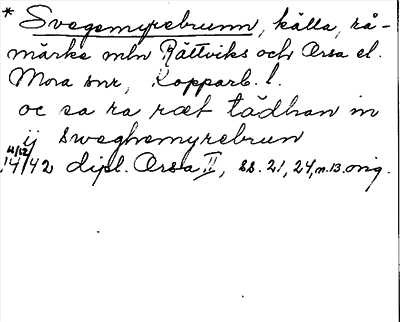 * Svegsmyrebrunn, källa, rå-
märke mln Rättviks och Orsa el.
Mora snr, Kopparb. l.
oc sa ra ræt tädhan in
ij sweghsmyrebrun
14/12 14/42 dipl. Orsa II, ss. 21, 24, n. 13. orig.